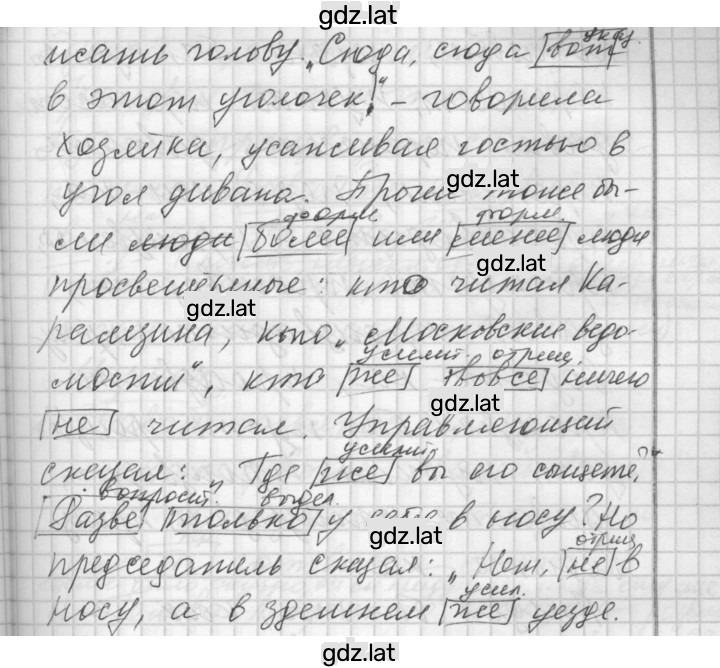 gdz.lat
указ.
исать голову. „Сюда, сюда [вот]
в этот уголочек!“ – говорила
хозяйка, усаживая гостью в
gdz.lat
угол дивана. Прочие тоже бы-
форм. форм.
ли люди [более] или [менее] люди
gdz.lat
просвещенные: кто читал Ка-
gdz.lat
рамзина, кто „Московские ведо-
усилит. отриц.
мости“, кто [же] [вовсе] ничего
gdz.lat
[не] читал. Управляющий
усилит.
сказал: „Где [же] вы его сыщете?
вопросит. выдел.
[Разве] [только] у себя в носу? Но
gdz.lat
отриц.
председатель сказал: „Нет, [не] в
усил.
носу, а в здешнем [же] уезде.
gdz.lat